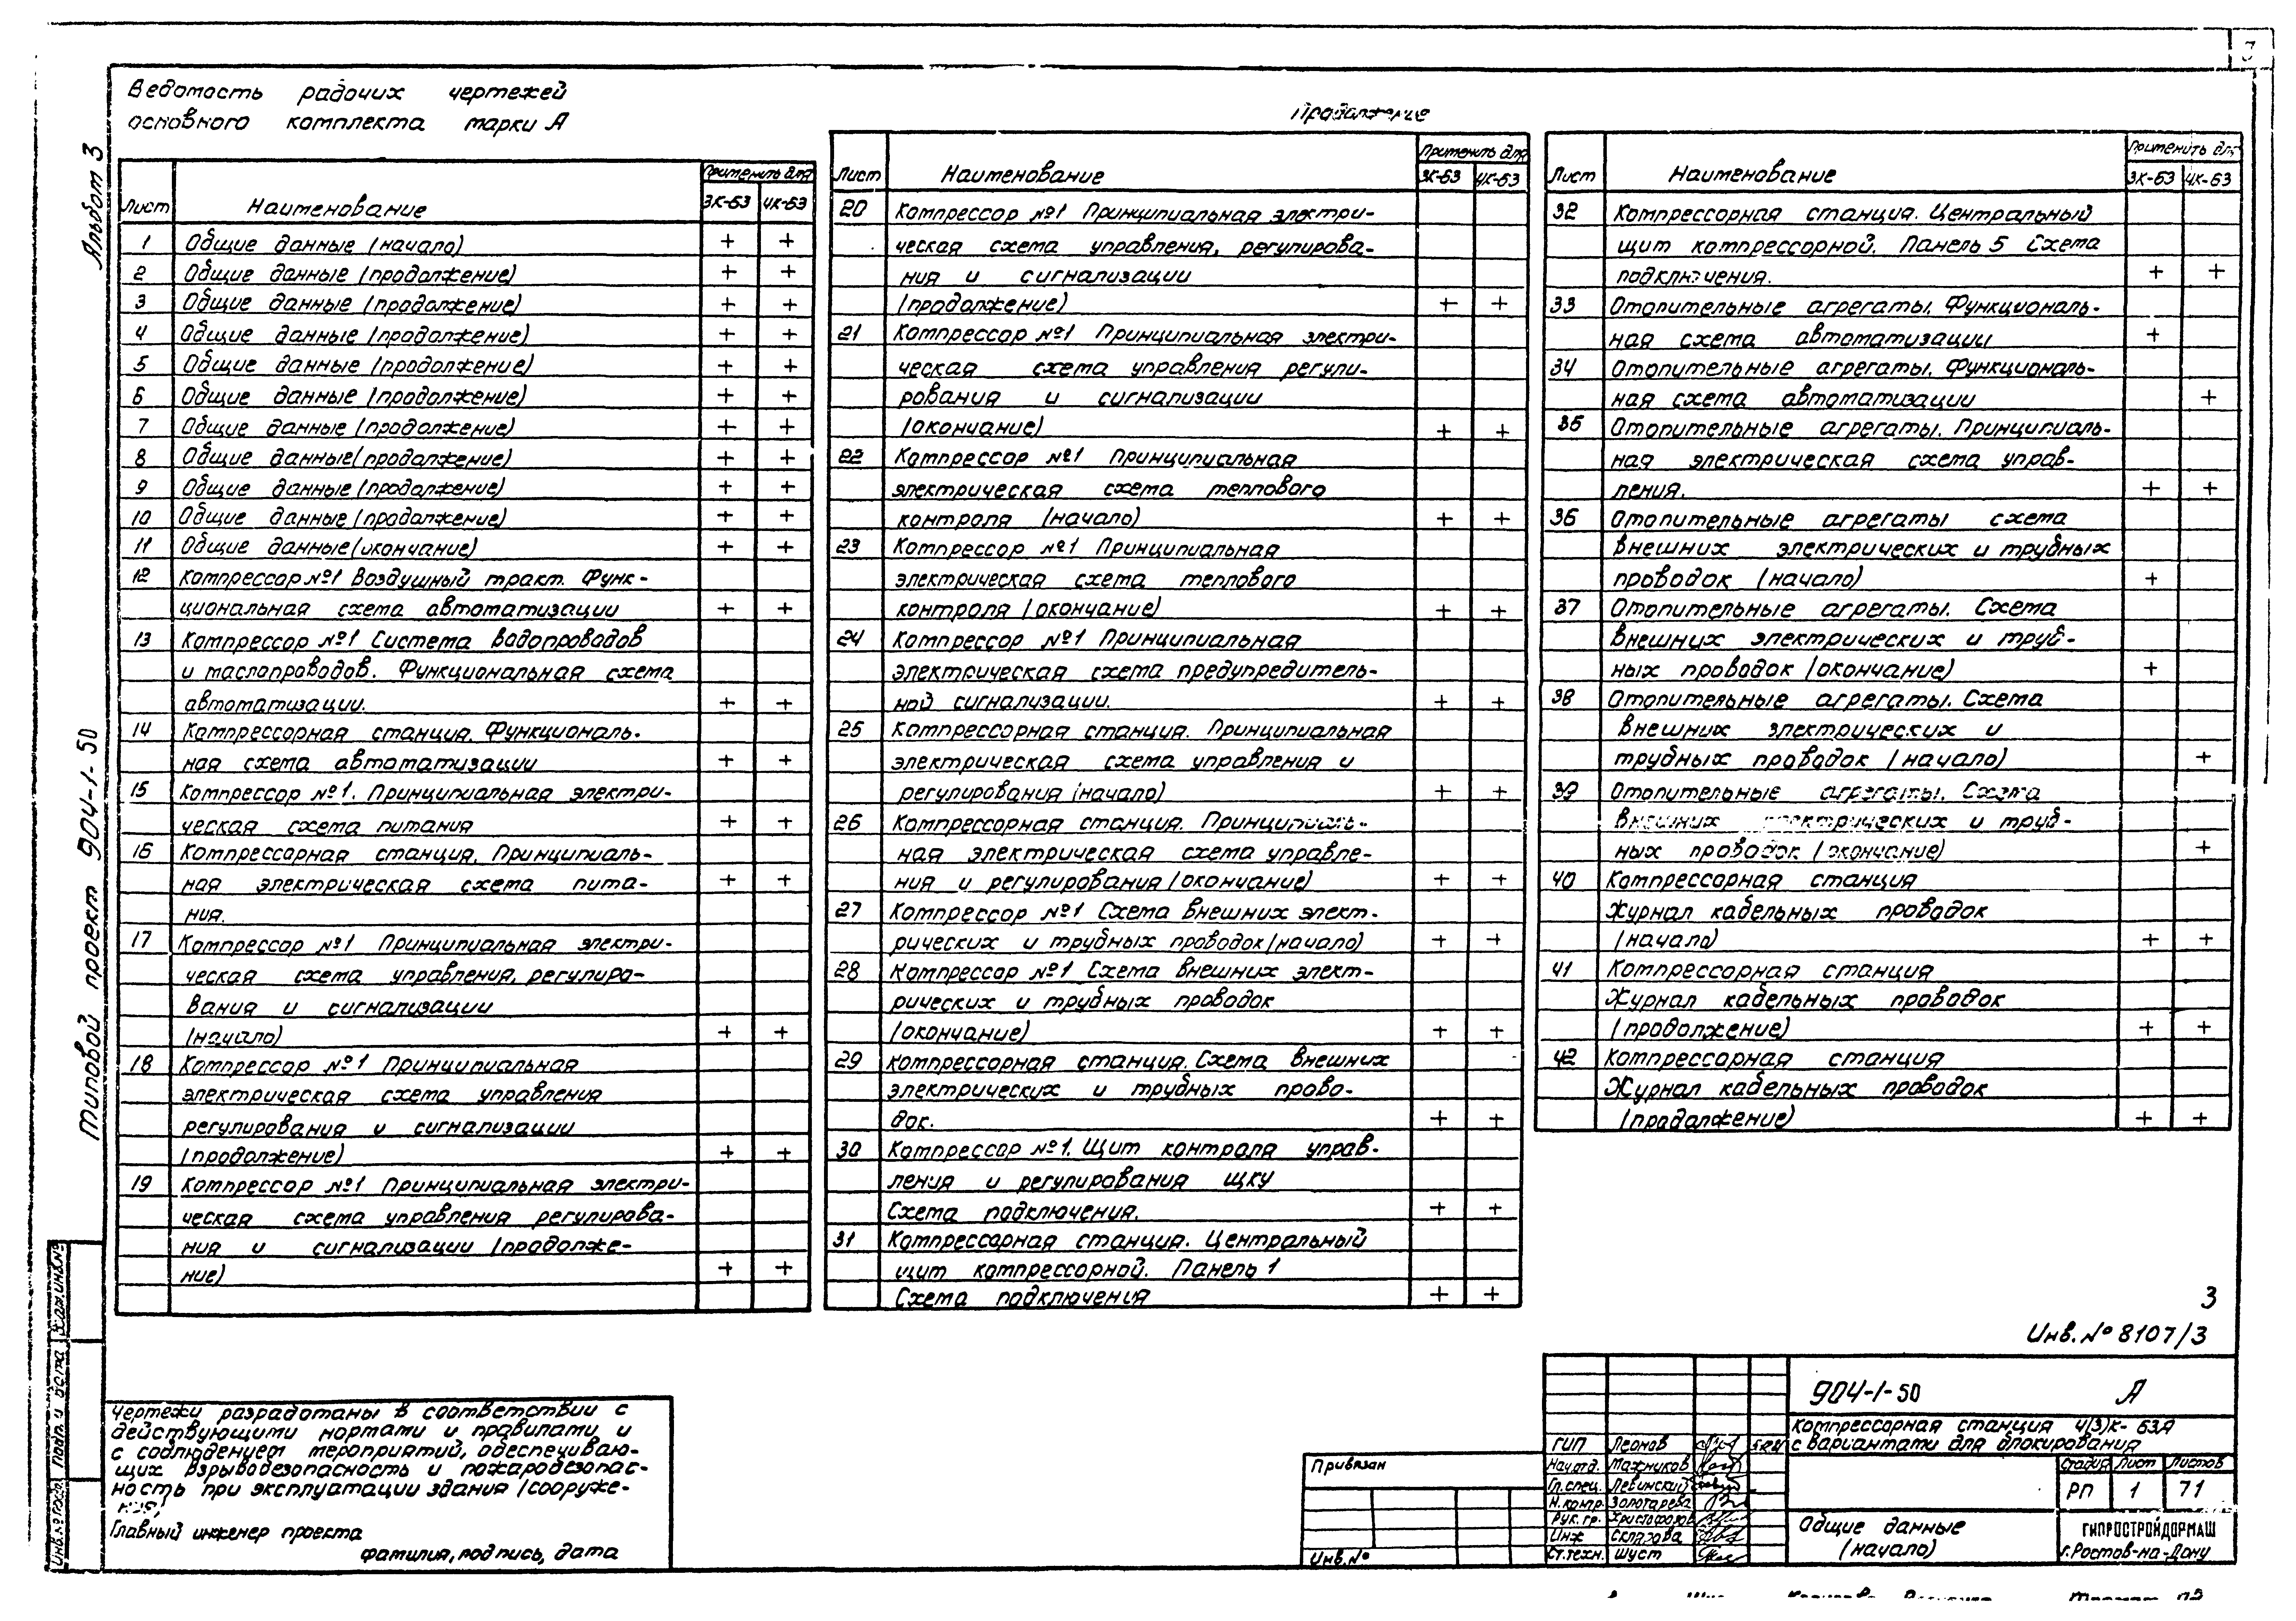 3
Альбом 3
Типовой проект 904-1-50
Ведомость рабочих чертежей
основного комплекта марки А
Лист Наименование Применить для
3К-63 4К-63
1 Общие данные (начало) + +
2 Общие данные (продолжение) + +
3 Общие данные (продолжение) + +
4 Общие данные (продолжение) + +
5 Общие данные (продолжение) + +
6 Общие данные (продолжение) + +
7 Общие данные (продолжение) + +
8 Общие данные (продолжение) + +
9 Общие данные (продолжение) + +
10 Общие данные (продолжение) + +
11 Общие данные (окончание) + +
12 Компрессор №1 Воздушный тракт. Функ-
циональная схема автоматизации + +
13 Компрессор №1 Система водопроводов
и маслопроводов. Функциональная схема
автоматизации. + +
14 Компрессорная станция. Функциональ-
ная схема автоматизации + +
15 Компрессор №1. Принципиальная электри-
ческая схема питания + +
16 Компрессорная станция. Принципиаль-
ная электрическая схема пита- + +
ния.
17 Компрессор №1 Принципиальная электри-
ческая схема управления, регулиро-
вания и сигнализации
(начало) + +
18 Компрессор №1 Принципиальная
электрическая схема управления
регулирования и сигнализации
(продолжение) + +
19 Компрессор №1 Принципиальная электри-
ческая схема управления регулирова-
ния и сигнализации (продолже-
ние) + +
Продолжение
Лист Наименование Применить для
3К-63 4К-63
20 Компрессор №1 Принципиальная электри-
ческая схема управления, регулирова-
ния и сигнализации
(продолжение) + +
21 Компрессор №1 Принципиальная электри-
ческая схема управления регули-
рования и сигнализации
(окончание) + +
22 Компрессор №1 Принципиальная
электрическая схема теплового
контроля (начало) + +
23 Компрессор №1 Принципиальная
электрическая схема теплового
контроля (окончание) + +
24 Компрессор №1 Принципиальная
электрическая схема предупредитель-
ной сигнализации. + +
25 Компрессорная станция. Принципиальная
электрическая схема управления и
регулирования (начало) + +
26 Компрессорная станция. Принципиаль-
ная электрическая схема управле-
ния и регулирования (окончание) + +
27 Компрессор №1 Схема внешних элект-
рических и трубных проводок (начало) + +
28 Компрессор №1 Схема внешних элект-
рических и трубных проводок
(окончание) + +
29 Компрессорная станция. Схема внешних
электрических и трубных прово-
док. + +
30 Компрессор №1. Щит контроля управ-
ления и регулирования ЩКУ
Схема подключения. + +
31 Компрессорная станция. Центральный
щит компрессорной. Панель 1
Схема подключения + +
Лист Наименование Применить для
3К-63 4К-63
32 Компрессорная станция. Центральный
щит компрессорной. Панель 5 Схема
подключения. + +
33 Отопительные агрегаты. Функциональ-
ная схема автоматизации +
34 Отопительные агрегаты. Функциональ-
ная схема автоматизации +
35 Отопительные агрегаты. Принципиаль-
ная электрическая схема управ-
ления. + +
36 Отопительные агрегаты схема
внешних электрических и трубных
проводок (начало) +
37 Отопительные агрегаты. Схема
внешних электрических и труб-
ных проводок (окончание) +
38 Отопительные агрегаты. Схема
внешних электрических и
трубных проводок (начало) +
39 Отопительные агрегаты. Схема
внешних электрических и труб-
ных проводок (окончание) +
40 Компрессорная станция
Журнал кабельных проводок
(начало) + +
41 Компрессорная станция
Журнал кабельных проводок
(продолжение) + +
42 Компрессорная станция
Журнал кабельных проводок
(продолжение) + +
3
Инв. № 8107/3
Чертежи разработаны в соответствии с
действующими нормами и правилами и
с соблюдением мероприятий, обеспечиваю-
щих взрывобезопасность и пожаробезопас-
ность при эксплуатации здания (сооруже-
ния)
Главный инженер проекта
фамилия, подпись, дата
Взам.инв.№
Подп. и дата
Инв.№ подл.
Привязан
Инв.№
ГИП Леонов
Нач.отд. Мажников
Гл.спец. Левинский
Н.контр. Золотарева
Рук. гр. Христофоров
Инж Склярова
Ст.техн. Шуст
904-1-50 А
Компрессорная станция 4(3)К-63А
с вариантами для блокирования
Стадия Лист Листов
РП 1 71
Общие данные
(начало)
ГИПРОСТРОЙДОРМАШ
г.Ростов-на-Дону